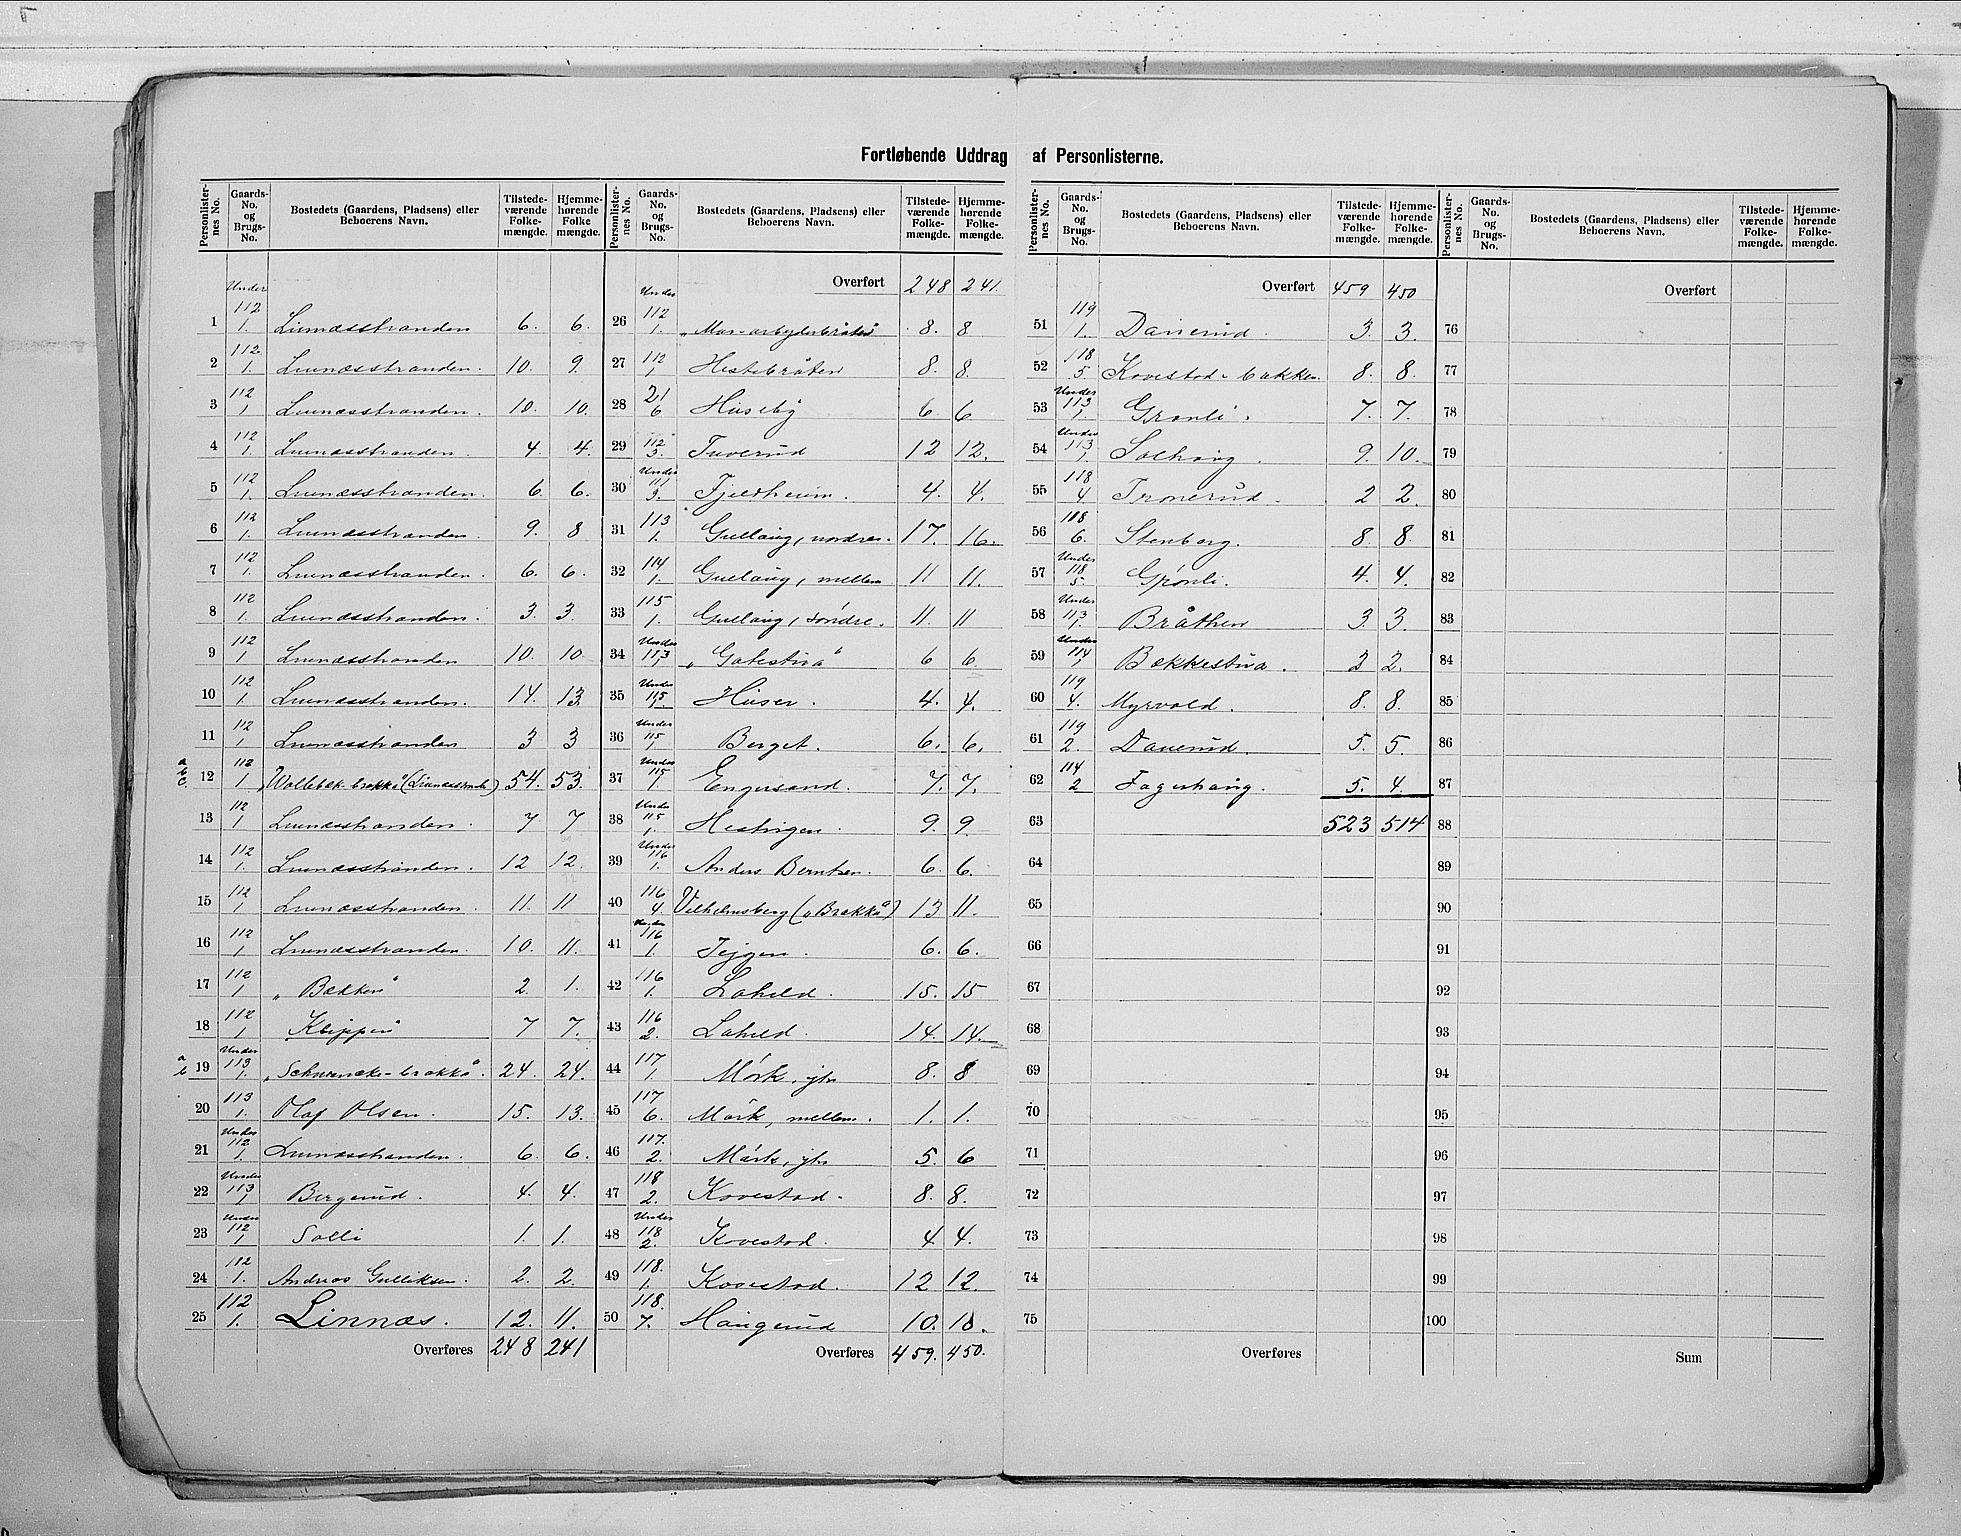 Fortløbende Uddrag af Personlisterne.
Personlister-nes No. | Gaards-No. og Brugs-No. | Bostedets (Gaardens, Pladsens) eller Beboerens Navn. | Tilstede-værende Folke-mængde. | Hjemme-hørende Folke mængde.
1 | Under 112/1. | Linnæsstranden | 6. | 6.
2 | 112./1. | Linnæsstranden. | 10. | 9.
3 | 112/1 | Linnæsstranden. | 10. | 10.
4 | 112/1. | Linnæsstranden. | 4. | 4.
5 | 112/1. | Linnæsstranden. | 6. | 6.
6 | 112/1. | Linnæsstranden. | 9. | 8
7 | 112/1. | Linnæsstranden. | 6. | 6.
8 | 112/1. | Linnæsstranden. | 3. | 3.
9 | 112/1 | Linnæsstranden | 10. | 10.
10 | 112/1. | Linnæsstranden. | 14. | 13
11 | 112/1 | Linnæsstranden | 3 | 3
a b c. 12 | 112/1 | „Wollebæk-brakka“ (Linnæsstrande) | 54. | 53.
13 | 112/1 | Linnæsstranden. | 7 | 7
14 | 112/1. | Linnæsstranden. | 12 | 12.
15 | 112/1 | Linnæsstranden. | 11. | 11
16 | 112/1 | Linnæsstranden. | 10. | 11.
17 | 112/1 | „Bakken“ | 2. | 1.
18 | 112/1 | Klippen | 7 | 7.
a b 19 | Under 113/1. | „Schwencke-brakka“. | 24. | 24.
20 | 113/1. | Olaf Olsen. | 15. | 13.
21 | Under 112/1. | Linnæsstranden. | 6. | 6.
22 | Under 113/1 | Bergerud. | 4. | 4.
23 | Under 112/1 | Solli | 1. | 1.
24 | 112/1. | Andreas Gulliksen. | 2. | 2.
25 | 112/1. | Linnæs. | 12. | 11.
Overføres | 248 | 241
Personlister-nes No. | Gaards-No. og Brugs-No. | Bostedets (Gaardens, Pladsens) eller Beboerens Navn. | Tilstede-værende Folke-mængde. | Hjemme-hørende Folke-mængde.
Overført | 248 | 241.
26 | Under 112/1. | 8. | 8
27 | 112/1 | Hestebråten | 8. | 8.
28 | 21/6 | Huseby | 6 | 6
29 | 112/3. | Tuverud | 12 | 12.
30 | Under 111/3. | Fjeldheim. | 4. | 4.
31 | 113/1. | Gullaug, nordre. | 17. | 16.
32 | 114/1. | Gullaug, mellem | 11 | 11.
33 | 115/1. | Gullaug, söndre. | 11. | 11
34 | Under 113/1 | „Gatestua“ | 6 | 6
35 | Under 115/1. | Huser. | 4. | 4.
36 | Under 115/1. | Berget. | 6. | 6.
37 | Under 115/1. | Engersand. | 7. | 7.
38 | Under 115/1. | Hestvigen. | 9. | 9.
39 | Under 116/1. | Anders Berntsen. | 6. | 6.
40 | 116/4. | Vilhelmsberg („Brakka“) | 13 | 11.
41 | Under 116/1. | Tejgen. | 6. | 6.
42 | 116/1. | Laheld. | 15. | 15
43 | 116/2. | Laheld. | 14. | 14.
44 | 117/1. | Mörk, ytr | 8. | 8
45 | 117/6. | Mörk, mellem. | 1. | 1.
46 | 117./2. | Mörk, ytr | 5. | 6
47 | 118/2. | Kovestad. | 8. | 8.
48 | Under 118/2. | Kovestad. | 4 | 4.
49 | 118./1. | Kovestad. | 12 | 12.
50 | 118./7. | Haugerud | 10. | 10.
Overføres | 459. | 450.
Personlister-nes No. | Gaards-No. og Brugs-No. | Bostedets (Gaardens, Pladsens) eller Beboerens Navn. | Tilstede-værende Folke-mængde. | Hjemme-hørende Folke-mængde.
Overført | 459 | 450
51 | 119/1. | Danerud. | 3. | 3.
52 | 118/5. | Kovestad-bakken. | 8. | 8.
53 | Under 113/1 | Grønli. | 7. | 7.
54 | Under 113/1. | Solhaug. | 9. | 10.
55 | 118/4 | Tronerud. | 2 | 2.
56 | 118/6. | Stenberg. | 8. | 8.
57 | Under 118/5. | Grønli. | 4. | 4.
58 | Under 113/1. | Bråthen | 3. | 3.
59 | Under 114/1 | Bakkestua. | 3 | 2.
60 | 119/4. | Myrvold. | 8. | 8.
61 | 119/2. | Danerud. | 5. | 5.
62 | 114/2 | Fagerhaug. | 5. | 4.
63 | 523 | 514
64
65
66
67
68
69
70
71
72
73
74
75
Overføres
Personlister-nes No. | Gaards-No. og Brugs-No. | Bostedets (Gaardens, Pladsens) eller Beboerens Navn. | Tilstede-værende Folke-mængde. | Hjemme-hørende Folke-mængde.
Overført
76
77
78
79
80
81
82
83
84
85
86
87
88
89
90
91
92
93
94
95
96
97
98
99
100
Sum